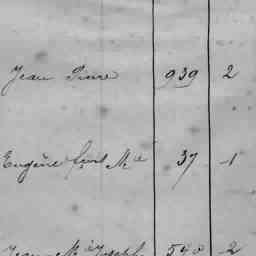 Jean Pierre 939 2
Eugène fils Mie 37 1
Jean Mie Joseph 540 2